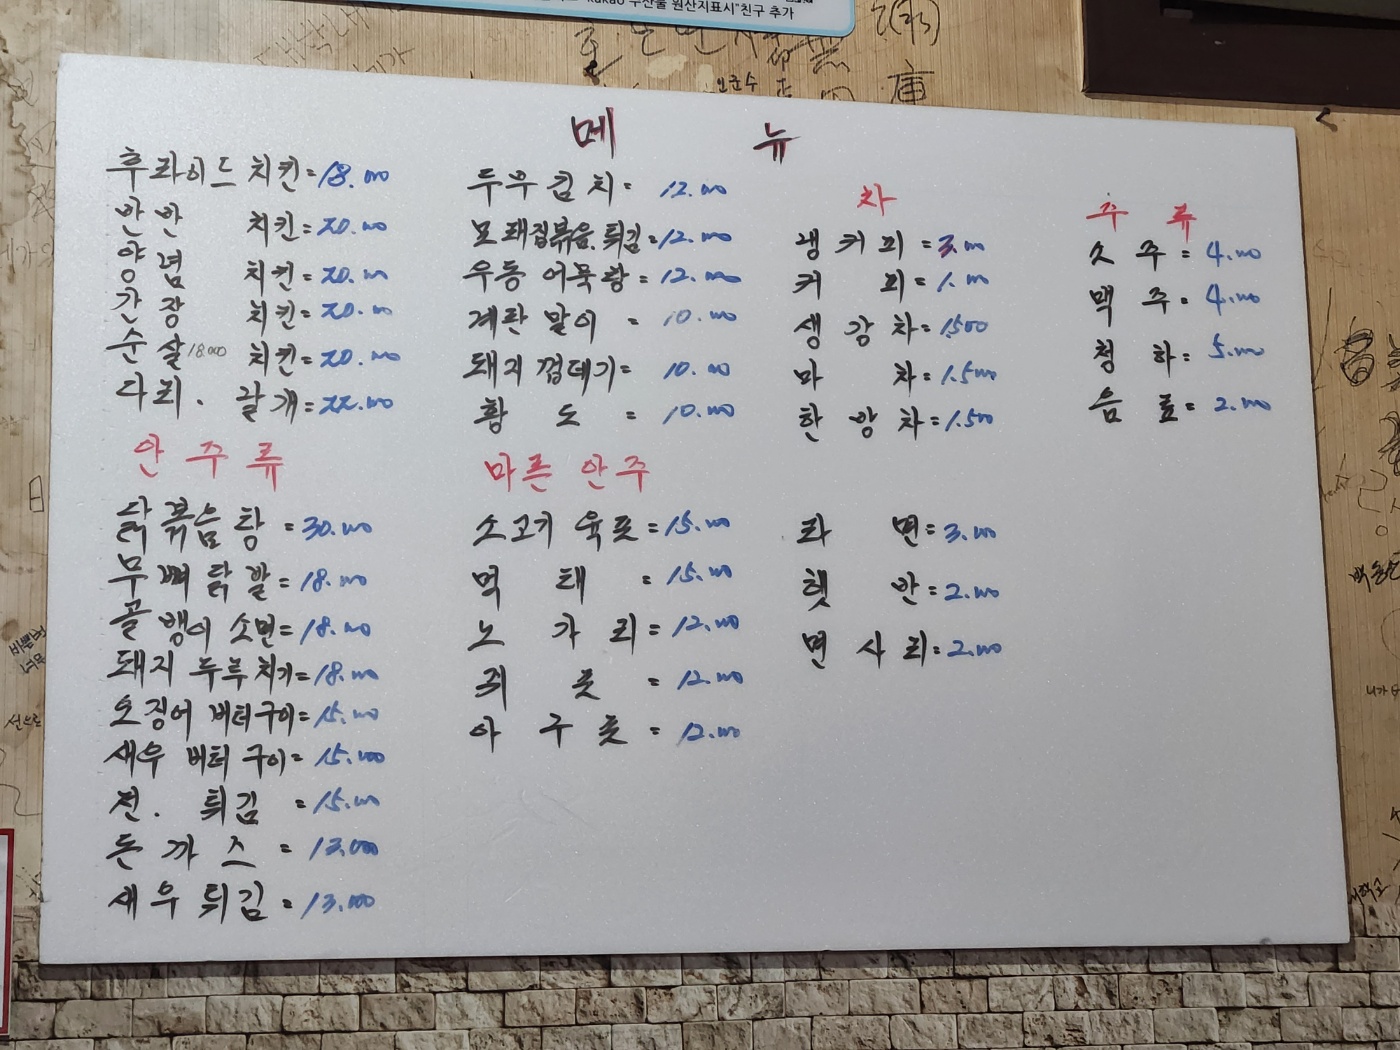 수산물 원산지표시"친구 추가
메 뉴
후라이드 치킨=18.000
반반 치킨=20.000
양념 치킨=20.000
간장 치킨=20.000
순살 18.000 치킨=20.000
다리. 날개=22.000
안주류
닭볶음탕=30.000
무뼈닭발=18.000
골뱅이 소면=18.000
돼지 두루치기=18.000
오징어 버터구이=15.000
새우 버터구이=15.000
전. 튀김=15.000
돈까스=13.000
새우튀김=13.000
두부김치=12.000
모래집볶음.튀김=12.000
우동 어묵탕=12.000
계란말이=10.000
돼지껍데기=10.000
황도=10.000
마른안주
소고기 육포=15.000
먹태=15.000
노가리=12.000
쥐포=12.000
아구포=12.000
차
냉커피=3.000
커피=1.000
생강차=1500
마차=1.500
한방차=1.500
라면=3.000
햇반=2.000
면사리=2.000
주류
소주=4.000
맥주=4.000
청하=5.000
음료=2.000